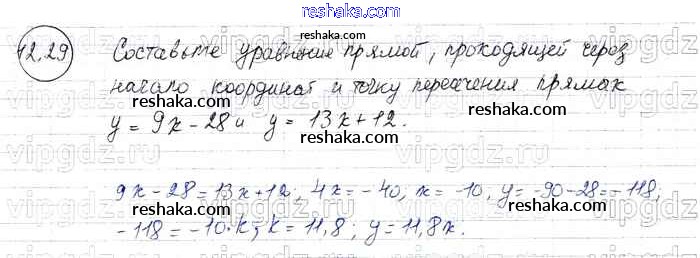 reshaka.com
12.29 Составьте уравнение прямой, проходящей через
начало координат и точку пересечения прямых
reshaka.com reshaka.com
y = 9x - 28 и y = 13x + 12.
reshaka.com
9x - 28 = 13x + 12; 4x = -40, x = -10, y = -90 - 28 = -118;
reshaka.com reshaka.com
-118 = -10·k; k = 11,8; y = 11,8x.
reshaka.com